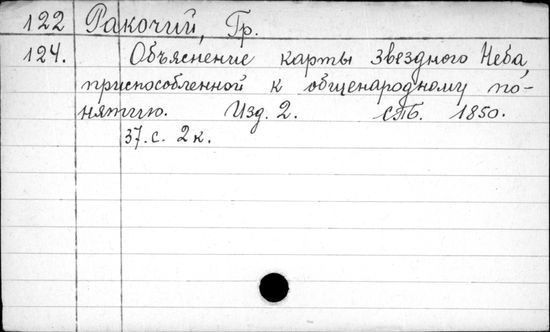 122 Ракочий, Гр.
124. Объяснение карты звездного Неба,
приспособленной к общенародному по-
нятию. Изд. 2. СПб. 1850.
37. с. 2 к.